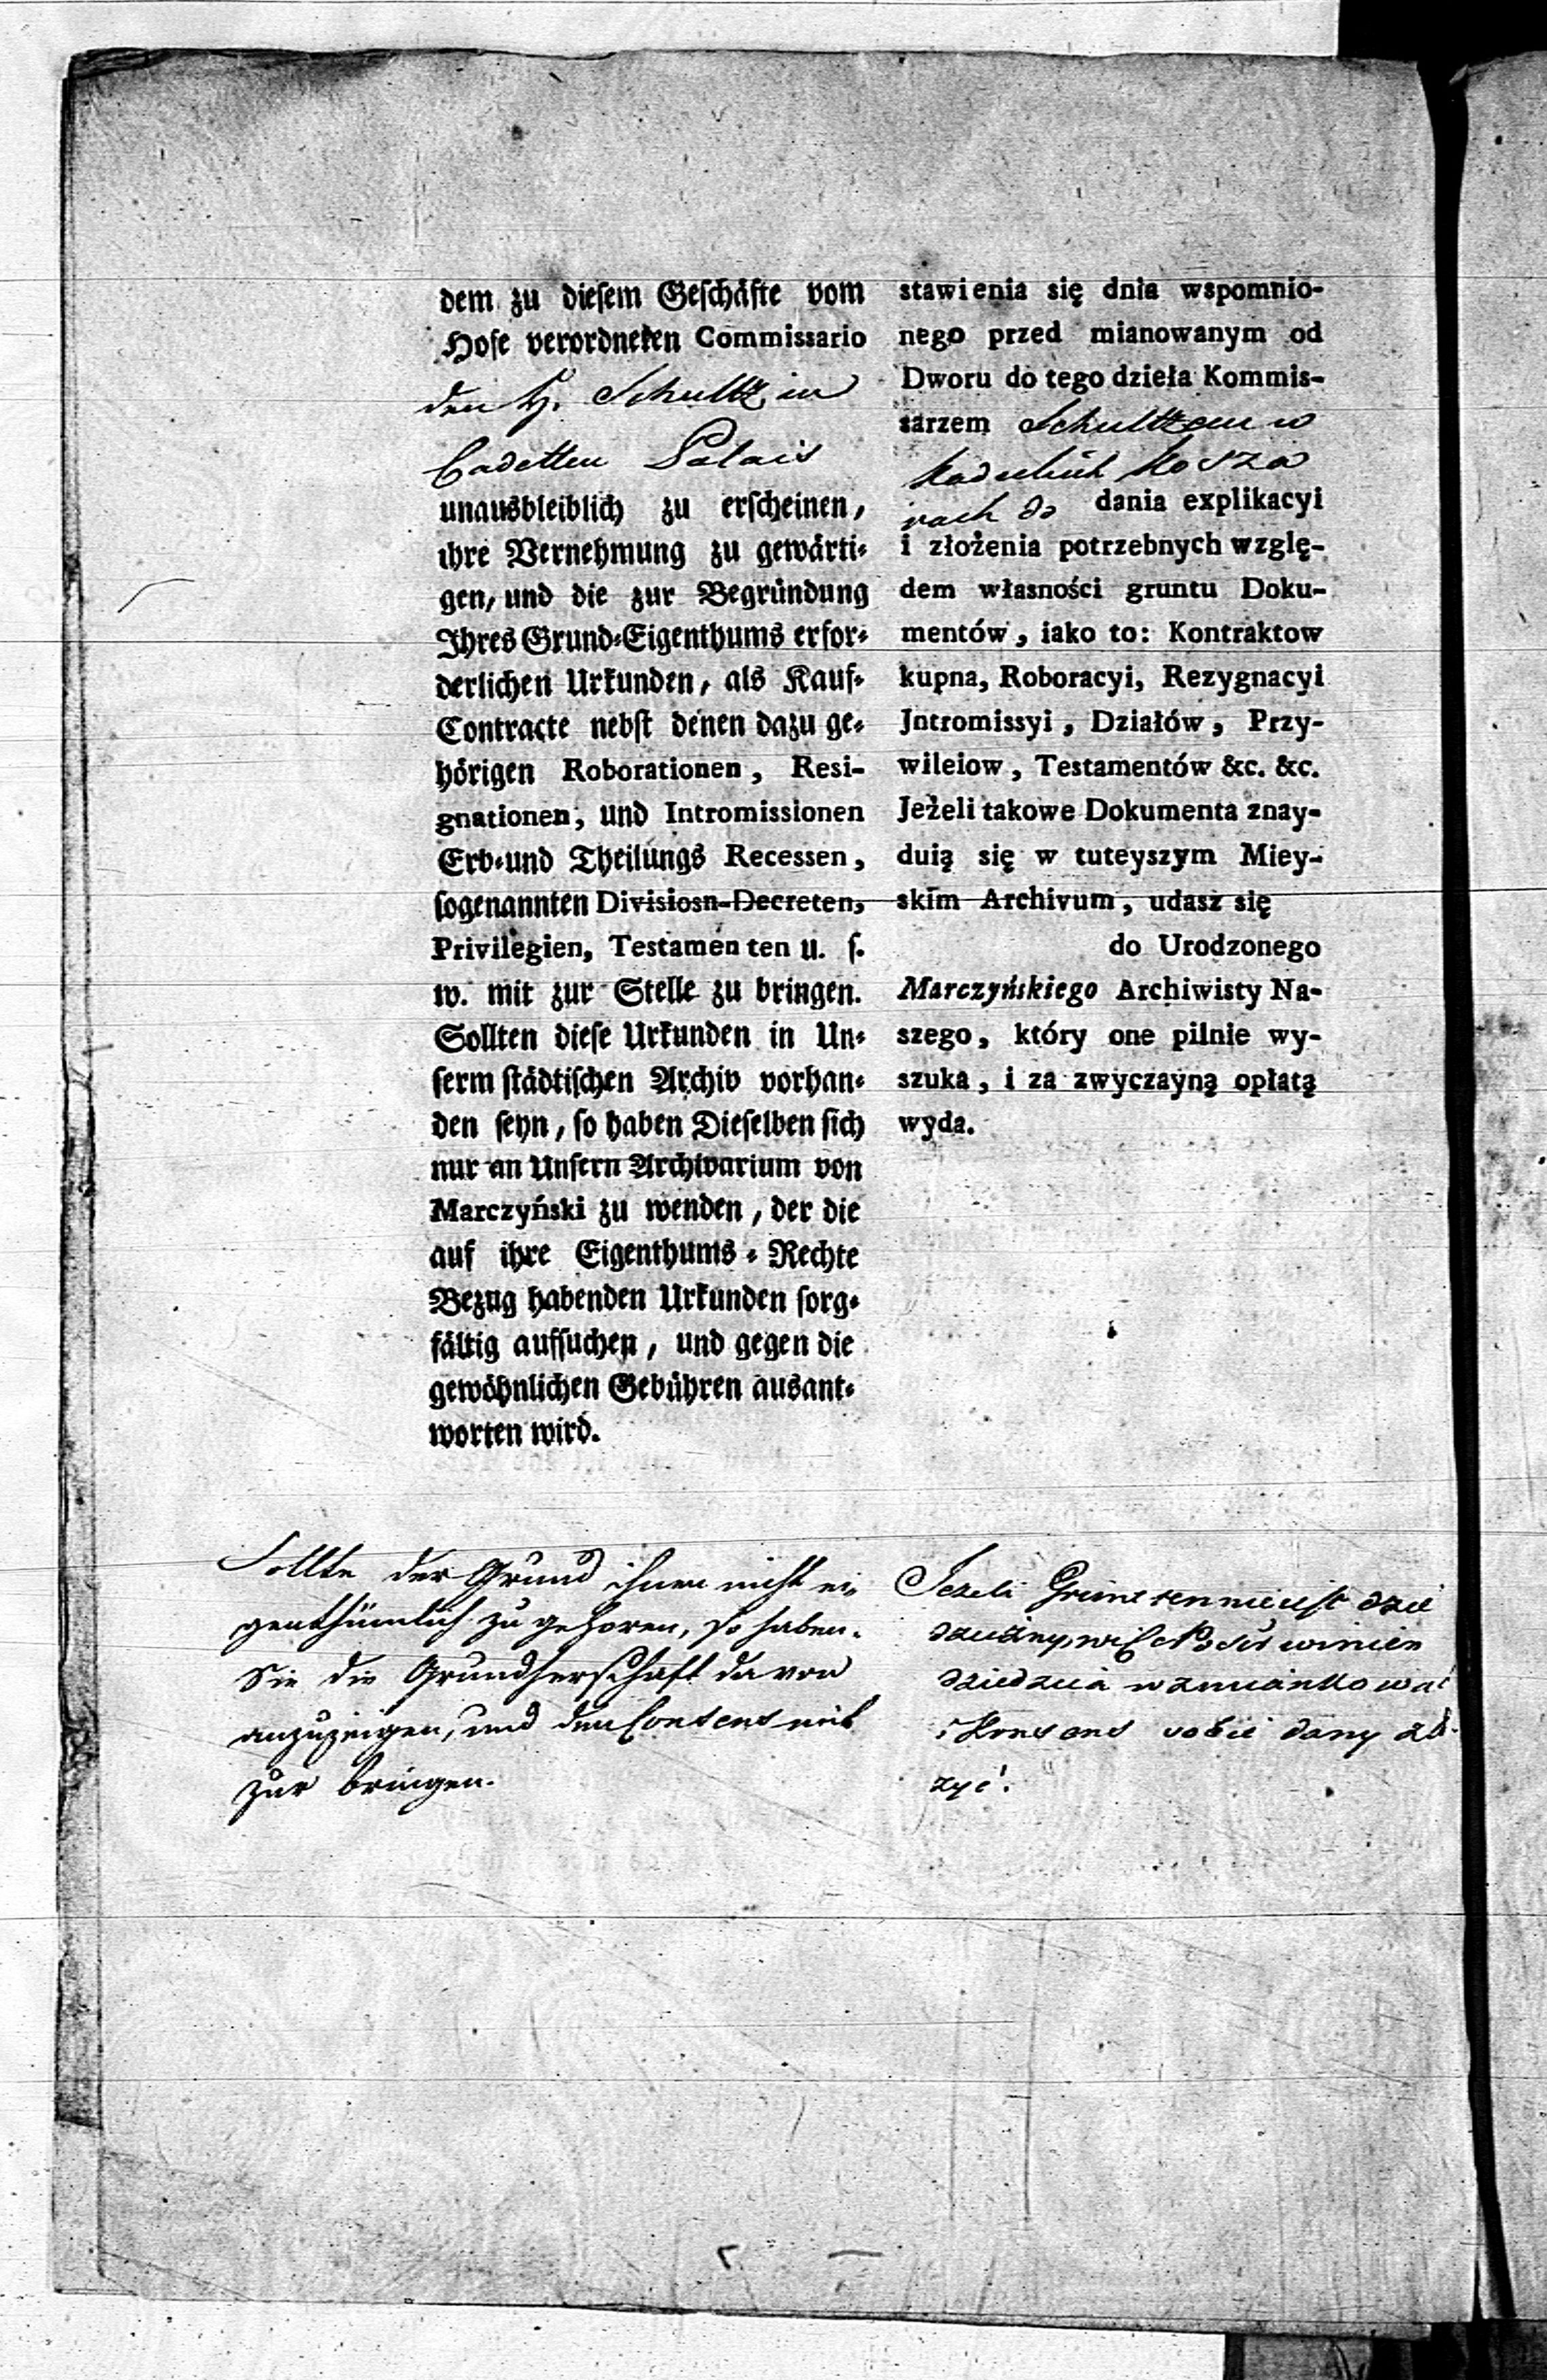 dem zu diesem Geschäfte vom
Hofe verordneten Commissario
den H. Schultz in
Cadetten Palais
unausbleiblich zu erscheinen,
ihre Vernehmung zu gewärti-
gen, und die zur Begründung
Ihres Grund-Eigenthums erfor-
derlichen Urkunden, als Kauf-
Contracte nebst denen dazu ge-
hörigen Roborationen, Resi-
gnationen, und Intromissionen
Erb-und Theilungs Recessen,
sogenannten Divisiosn-Decreten,
Privilegien, Testamen ten u. s.
w. mit zur Stelle zu bringen.
Sollten diese Urkunden in Un-
serm städtischen Archiv vorhan-
den seyn, so haben Dieselben sich
nur an Unsern Archivarium von
Marczyński zu wenden, der die
auf ihre Eigenthums-Rechte
Bezug habenden Urkunden sorg-
fältig aufsuchen, und gegen die
gewöhnlichen Gebühren ausant-
worten wird.
Sollte der Grund ihnen nicht ei-
genthümlich zu gehoren, so haben
Sie die Grundherschaft davon
anzuzeigen, und den Consens mit
zur bringen.
stawienia się dnia wspomnio-
nego przed mianowanym od
Dworu do tego dzieła Kommis-
sarzem Schultzem w
Kadeckich Kosza
rach do dania explikacyi
i złożenia potrzebnych wzglę-
dem własności gruntu Doku-
mentów, iako to: Kontraktow
kupna, Roboracyi, Rezygnacyi
Jntromissyi, Działów, Przy-
wileiow, Testamentów &c. &c.
Jeżeli takowe Dokumenta znay-
duią się w tuteyszym Miey-
skim Archivum, udasz się
do Urodzonego
Marczyńskiego Archiwisty Na-
szego, który one pilnie wy-
szuka, i za zwyczayną opłatą
wyda.
Jeżeli Grunt ten nie iest dzie
dziczny, winien
Dziedzica wzmiankować
i Konsens sobie dany zło-
żyć.